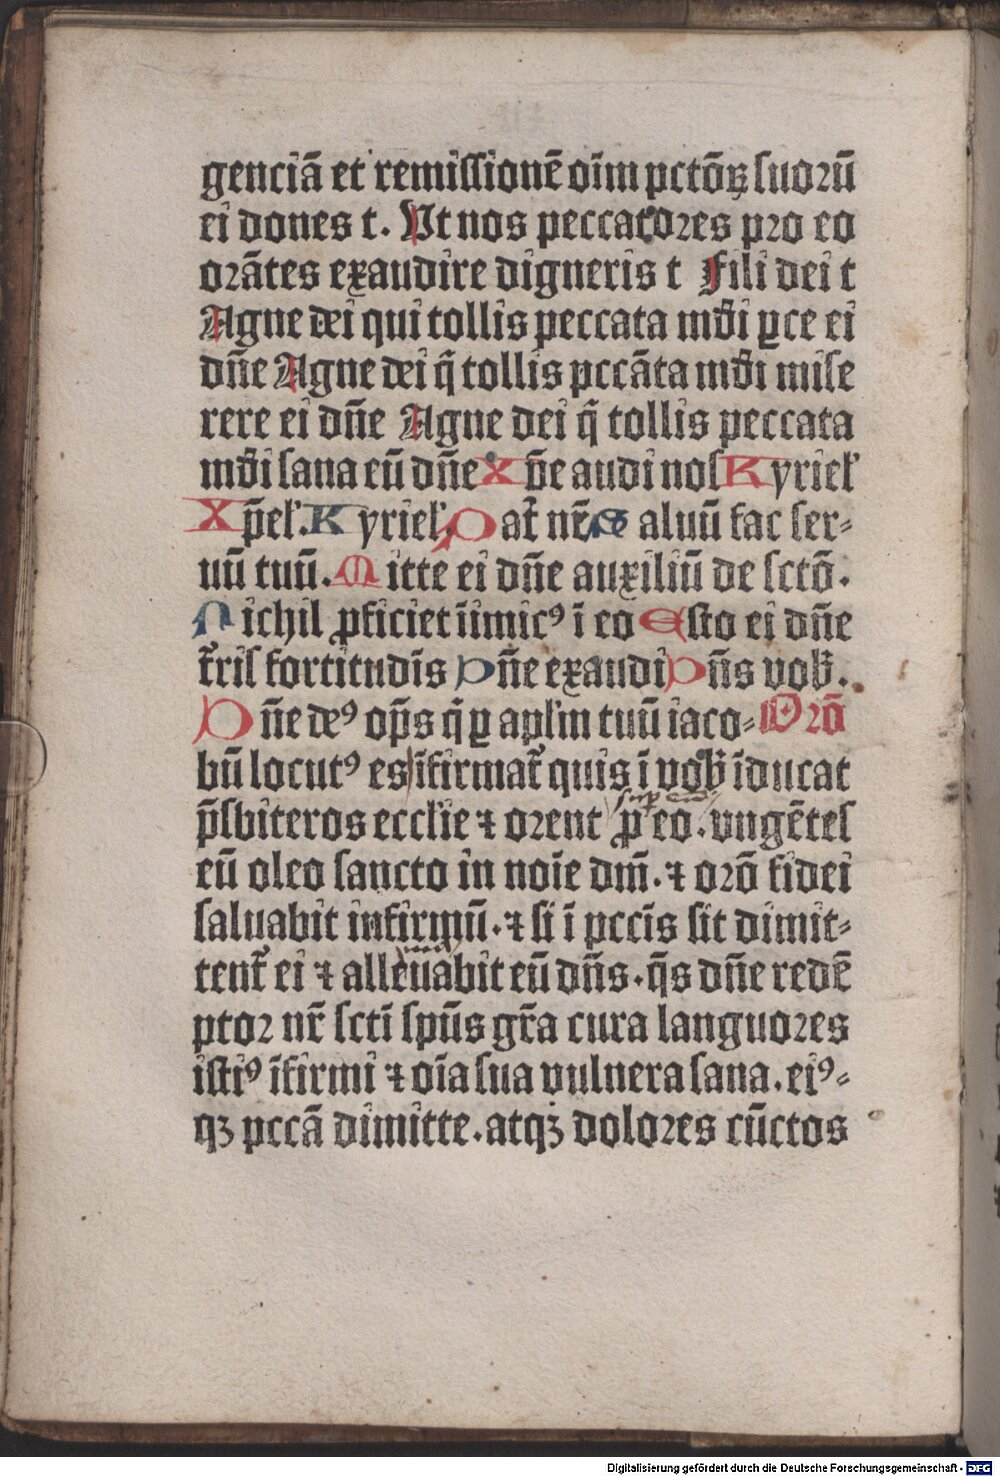 genciā et remissionē oīm pctōꝝ suorū
ei dones t. Vt nos peccatores pro eo
orātes exaudire digneris t Fili dei t
Agne dei qui tollis peccata mūdi ꝑce ei
dn̄e Agne dei q̄ tollis pccāta mūdi mise
rere ei dn̄e Agne dei q̄ tollis peccata
mūdi sana eū dn̄e Xp̄e audi nos Kyriel̓
Xp̄el̓. Kyriel̓. Pat̄ nr̄ Saluū fac ser-
uū tuū. Mitte ei dn̄e auxiliū de sctō.
Nichil ꝓficiet īimicꝰ ī eo Esto ei dn̄e
t̄ris fortitudīs Dn̄e exaudi Dn̄s vob̄.
Dn̄e deꝰ op̄s q̄ ꝑ apl̄m tuū iaco- Orō
bū locutꝰ es īfirmat̄ quis ī vob̄ īducat
p̄sbiteros eccl̄ie ⁊ orent ꝓ eo. vngētes
eū oleo sancto in noīe dn̄i. ⁊ orō fidei
saluabit infirmū. ⁊ si ī pccīs sit dimit-
tent̄ ei ⁊ alleuiabit eū dn̄s. q̄s dn̄e redē
ptor nr̄ sctī sp̄us gr̄a cura languores
istiꝰ īfirmi ⁊ oīa sua vulnera sana. eiꝰ-
qꝫ pccā dimitte. atqꝫ dolores cūctos
Digitalisierung gefördert durch die Deutsche Forschungsgemeinschaft - DFG